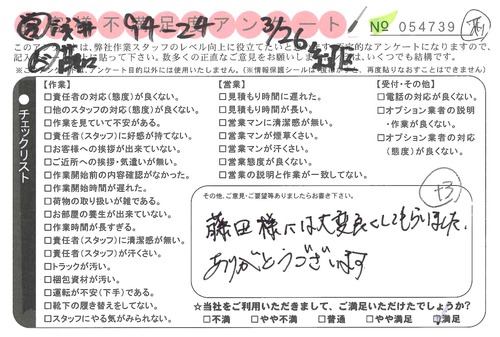 お客様不満足度アンケート
94-24
3/26
№ 054739
このアンケートは、弊社作業スタッフのレベル向上に役立てたいと
的なアンケートになりますので、
貼って下さい。数多くの正直なご意見をお願いします。いくつでも結構です。
アンケート目的以外には使用いたしません。(※情報保護シール
再度貼りなおすことができません)
チェックリスト
【作業】
□責任者の対応(態度)が良くない。
□他のスタッフの対応(態度)が良くない。
□作業を見ていて不安がある。
□責任者(スタッフ)に好感が持てない。
□お客様への挨拶が出来ていない。
□ご近所への挨拶・気遣いが無い。
□作業開始前の内容確認がなかった。
□作業開始時間が遅れた。
□荷物の取り扱いが雑である。
□お部屋の養生が出来ていない。
□作業時間が長すぎる。
□責任者(スタッフ)に清潔感が無い。
□責任者(スタッフ)が汗くさい。
□トラックが汚い。
□梱包資材が汚い。
□運転が不安(下手)である。
□靴下の履き替えをしてない。
□スタッフにやる気がみられない。
【営業】
□見積もり時間に遅れた。
□見積もり時間が長い。
□営業マンに清潔感が無い。
□営業マンが煙草くさい。
□営業マンが汗くさい。
□営業態度が良くない。
□営業の説明と作業が一致してない。
【受付・その他】
□電話の対応が良くない。
□オプション業者の説明
・作業が良くない。
□オプション業者の対応
(態度)が良くない。
+3
その他、ご意見・ご要望等ありましたらお書き下さい。
藤田様には大変良くしてもらいました。
ありがとうございます
☆当社をご利用いただきまして、ご満足いただけたでしょうか?
□不満 □やや不満 □普通 □やや満足 □満足